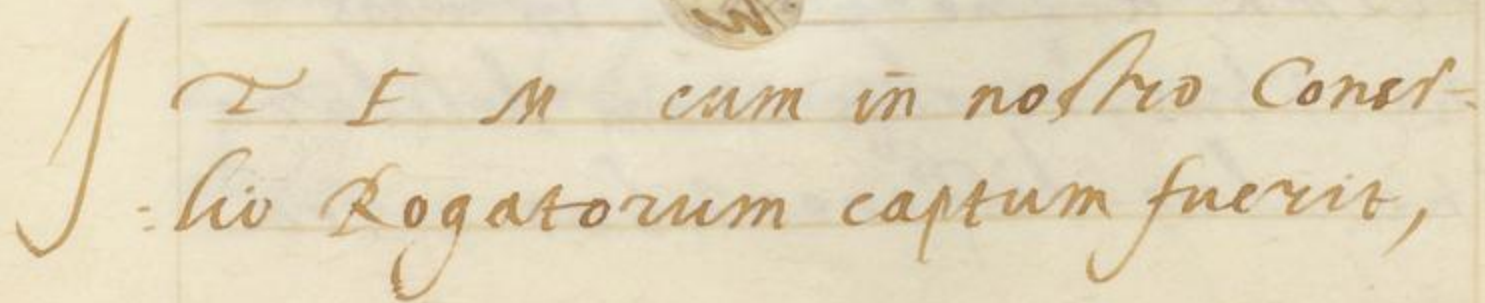 ITEM cum in nostro Consi-
=lio Rogatorum captum fuerit,